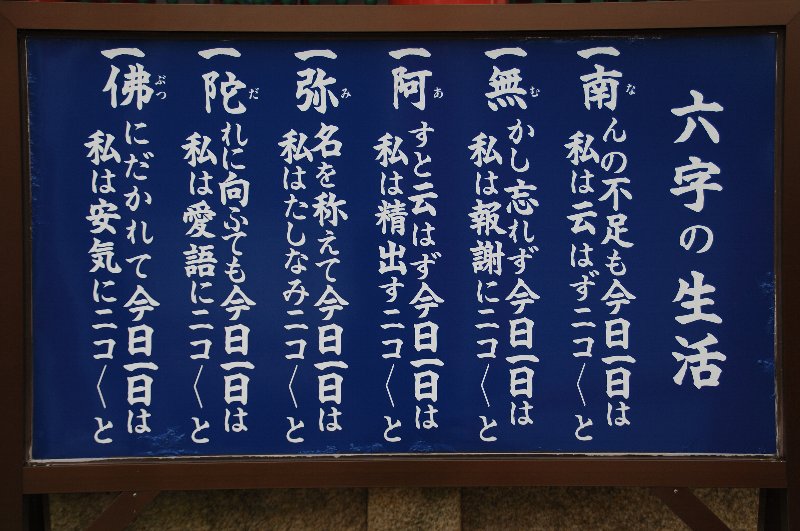 六字の生活
一南なんの不足も今日一日は
私は云はずニコ〱と
一無むかし忘れず今日一日は
私は報謝にニコ〱と
一阿あすと云はず今日一日は
私は精出すニコ〱と
一弥み名を称えて今日一日は
私はたしなみニコ〱と
一陀だれに向ふても今日一日は
私は愛語にニコ〱と
一佛ぶつにだかれて今日一日は
私は安気にニコ〱と